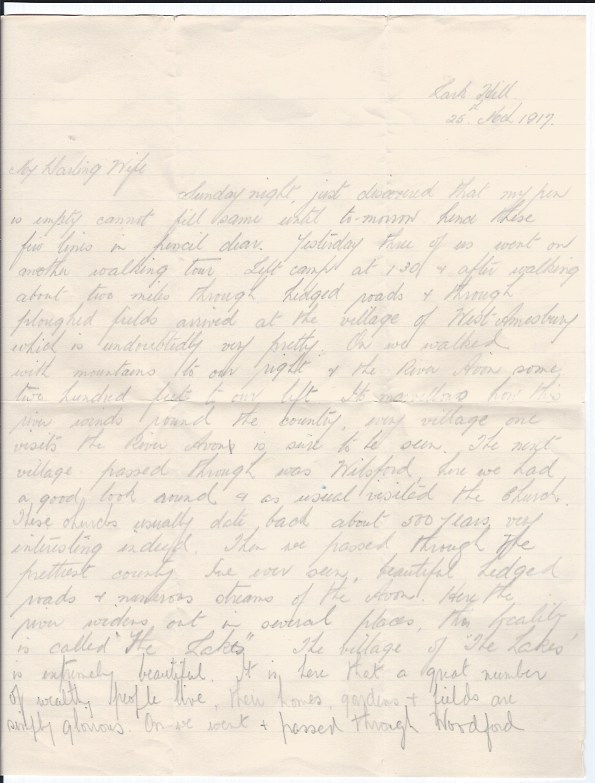 Lark Hill
25th Nov 1917.
My Darling Wife
Sunday night, just discovered that my pen
is empty cannot fill same until to-morrow hence these
few lines in pencil dear. Yesterday three of us went on
another walking tour. Left camp at 1.30 & after walking
about two miles through hedged roads & through
ploughed fields arrived at the village of West Amesbury
which is undoubtedly very pretty. On we walked
with mountains to our right & the River Avon some
two hundred feet to our left. It marvellous how this
river winds round the country, every village one
visits the River Avon is sure to be seen. The next
village passed through was Wilsford, here we had
a good look around & as usual visited the Church.
These churchs usually date back about 500 years, very
interesting indeed. Then we passed through the
prettiest county I've ever seen, beautiful hedged
roads & numerous streams of the Avon. Here the
river widens out in several places, this locality
is called "The Lakes" The village of "The Lakes"
is extremely beautiful. It is here that a great number
of wealthy people live, their homes, gardens & fields are
simply glorious. On we went & passed through Woodford